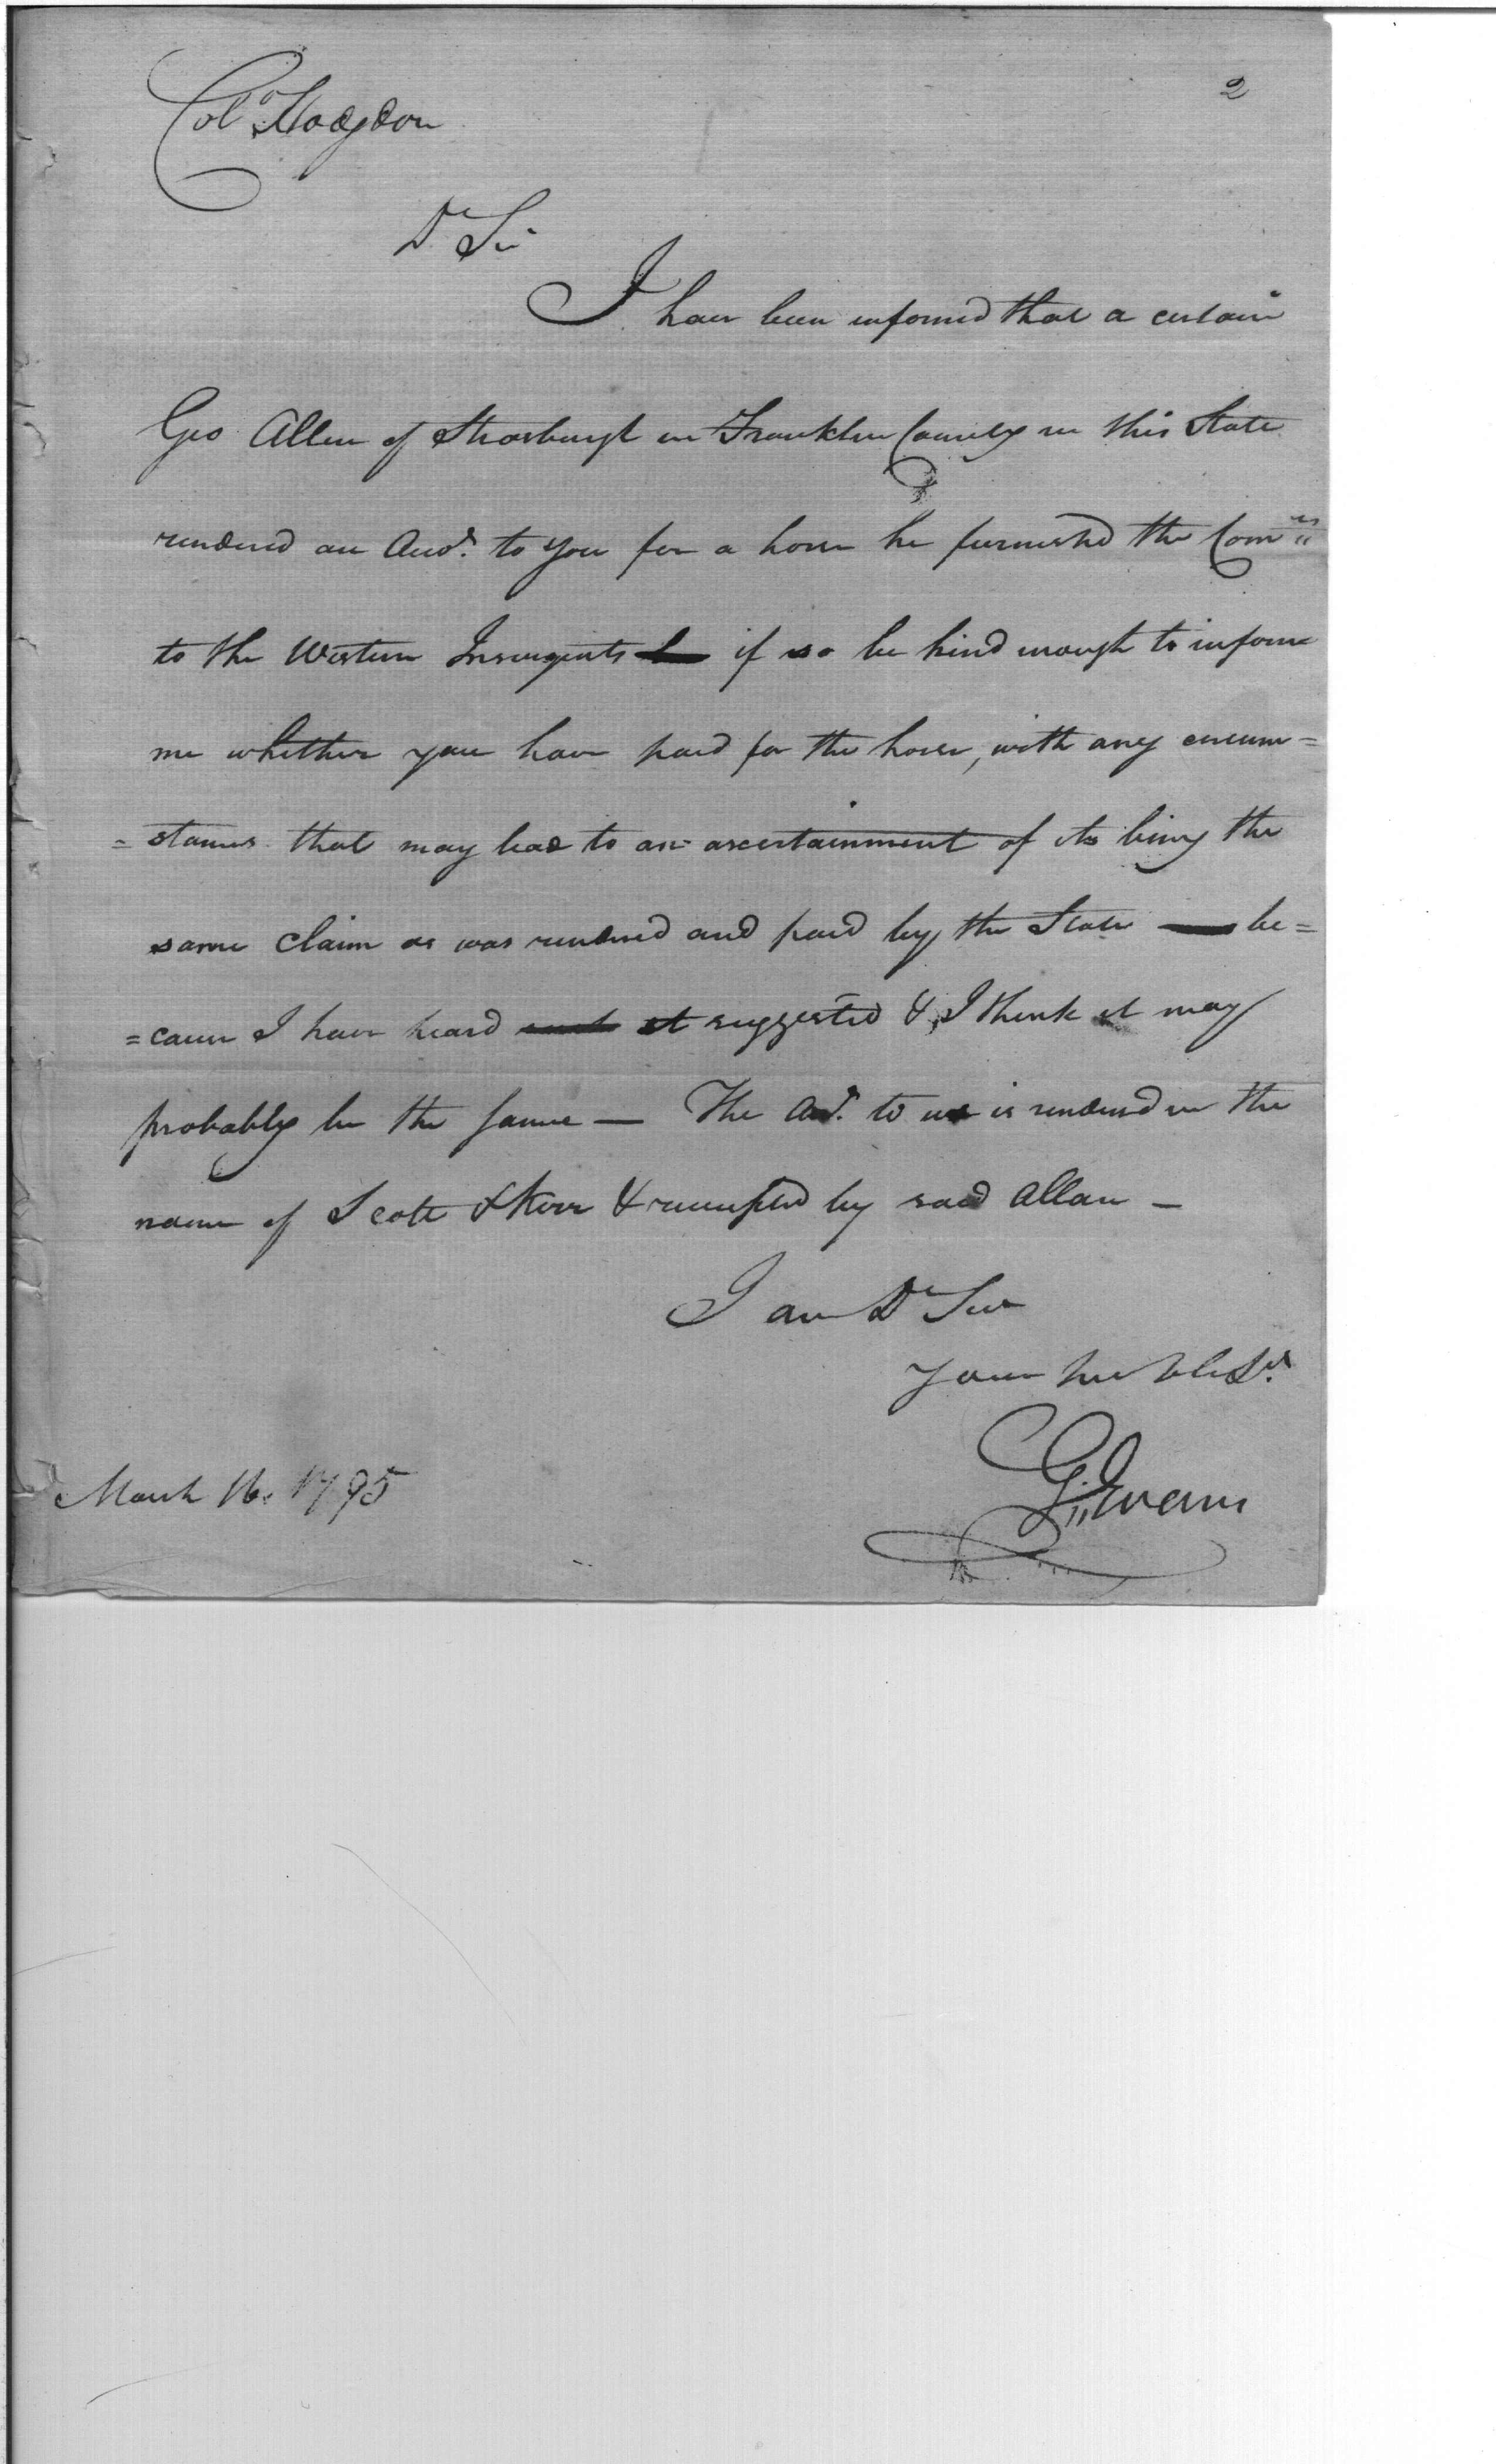 2
Col.º Hodgdon
Dr Sir
I have been informed that a certain
Geo Allen of Strasburgh in Franklin County in this State
rendered an Acco.t to you for a horse he furnished the Com.rs
to the Western Insurgents if so be kind enough to inform
me whether you have paid for the horse, with any circum=
=stances that may lead to an ascertainment of its being the
same claim as was rendered and paid by the State be=
=cause I have heard it suggested & I think it may
probably be the same — The Acct. to us is rendered in the
name of Scott & Kerr & receipted by said Allan —
I am Dr Sir
Your huble St.
G: Evans
March 16. 1795